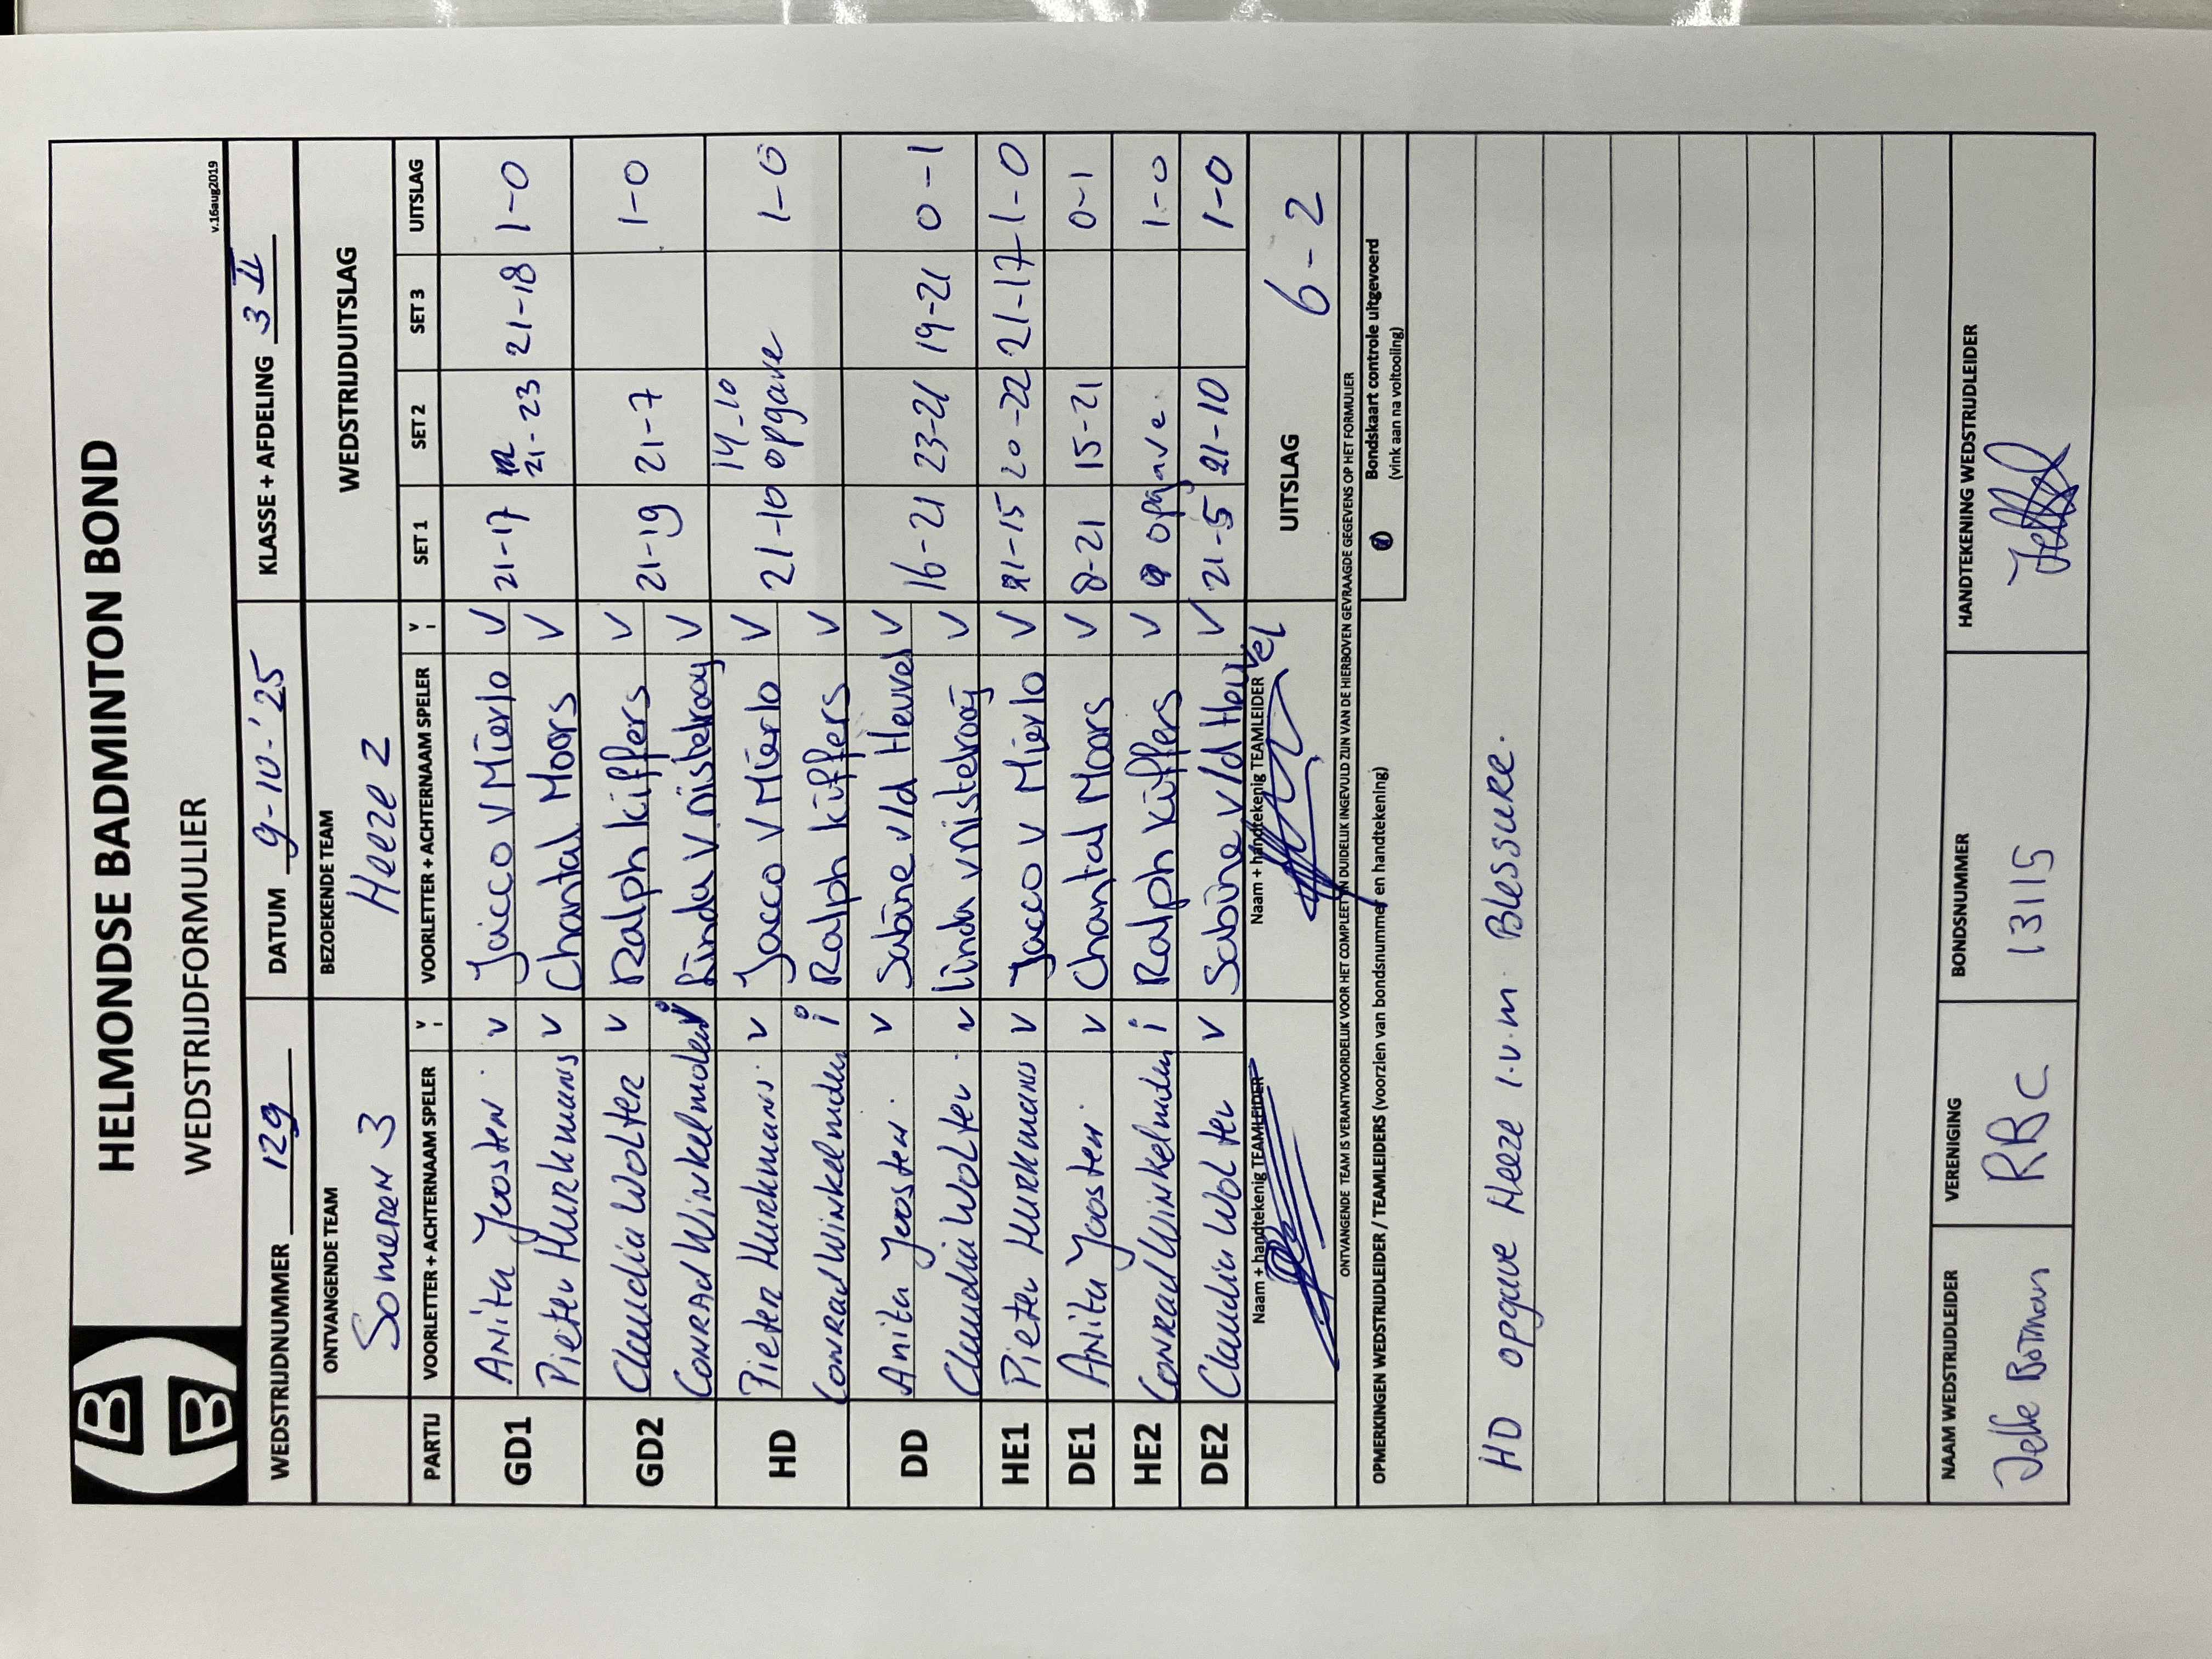 HELMONDSE BADMINTON BOND
WEDSTRIJDFORMULIER
v.16aug2019
WEDSTRIJDNUMMER 129 DATUM 9-10-'25 KLASSE + AFDELING 3 II
ONTVANGENDE TEAM BEZOEKENDE TEAM WEDSTRIJDUITSLAG
Someren 3 Heeze 2
PARTIJ VOORLETTER + ACHTERNAAM SPELER V i VOORLETTER + ACHTERNAAM SPELER V i SET 1 SET 2 SET 3 UITSLAG
GD1 Anita Joosten v Jacco v Mierlo v 21-17 21-23 21-18 1-0
Pieter Hurkmans v Chantal Moors v
GD2 Claudia Wolter v Ralph Kuffers v 21-19 21-7 1-0
Conrad Winkelmolen Linda v nistelrooy v
HD Pieter Hurkmans v Jacco v Mierlo v 21-10 14-10 opgave 1-0
Conrad Winkelmolen i Ralph Kuffers v
DD Anita Joosten v Sabine v/d Heuvel v 16-21 23-21 19-21 0-1
Claudia Wolter v Linda v nistelrooij v
HE1 Pieter Hurkmans v Jacco v Mierlo v 21-15 20-22 21-17 1-0
DE1 Anita Joosten v Chantal Moors v 8-21 15-21 0-1
HE2 Conrad Winkelmolen i Ralph Kuffers v opgave 1-0
DE2 Claudia Wolter v Sabine v/d Heuvel v 21-5 21-10 1-0
Naam + handtekenig TEAMLEIDER Naam + handtekenig TEAMLEIDER UITSLAG 6-2
ONTVANGENDE TEAM IS VERANTWOORDELIJK VOOR HET COMPLEET EN DUIDELIJK INGEVULD ZIJN VAN DE HIERBOVEN GEVRAAGDE GEGEVENS OP HET FORMULIER
OPMERKINGEN WEDSTRIJDLEIDER / TEAMLEIDERS (voorzien van bondsnummer en handtekening) Bondskaart controle uitgevoerd
(vink aan na voltooiing)
HD opgave Heeze i.v.m. Blessure.
NAAM WEDSTRIJDLEIDER VERENIGING BONDSNUMMER HANDTEKENING WEDSTRIJDLEIDER
Jelle Botman RBC 13115